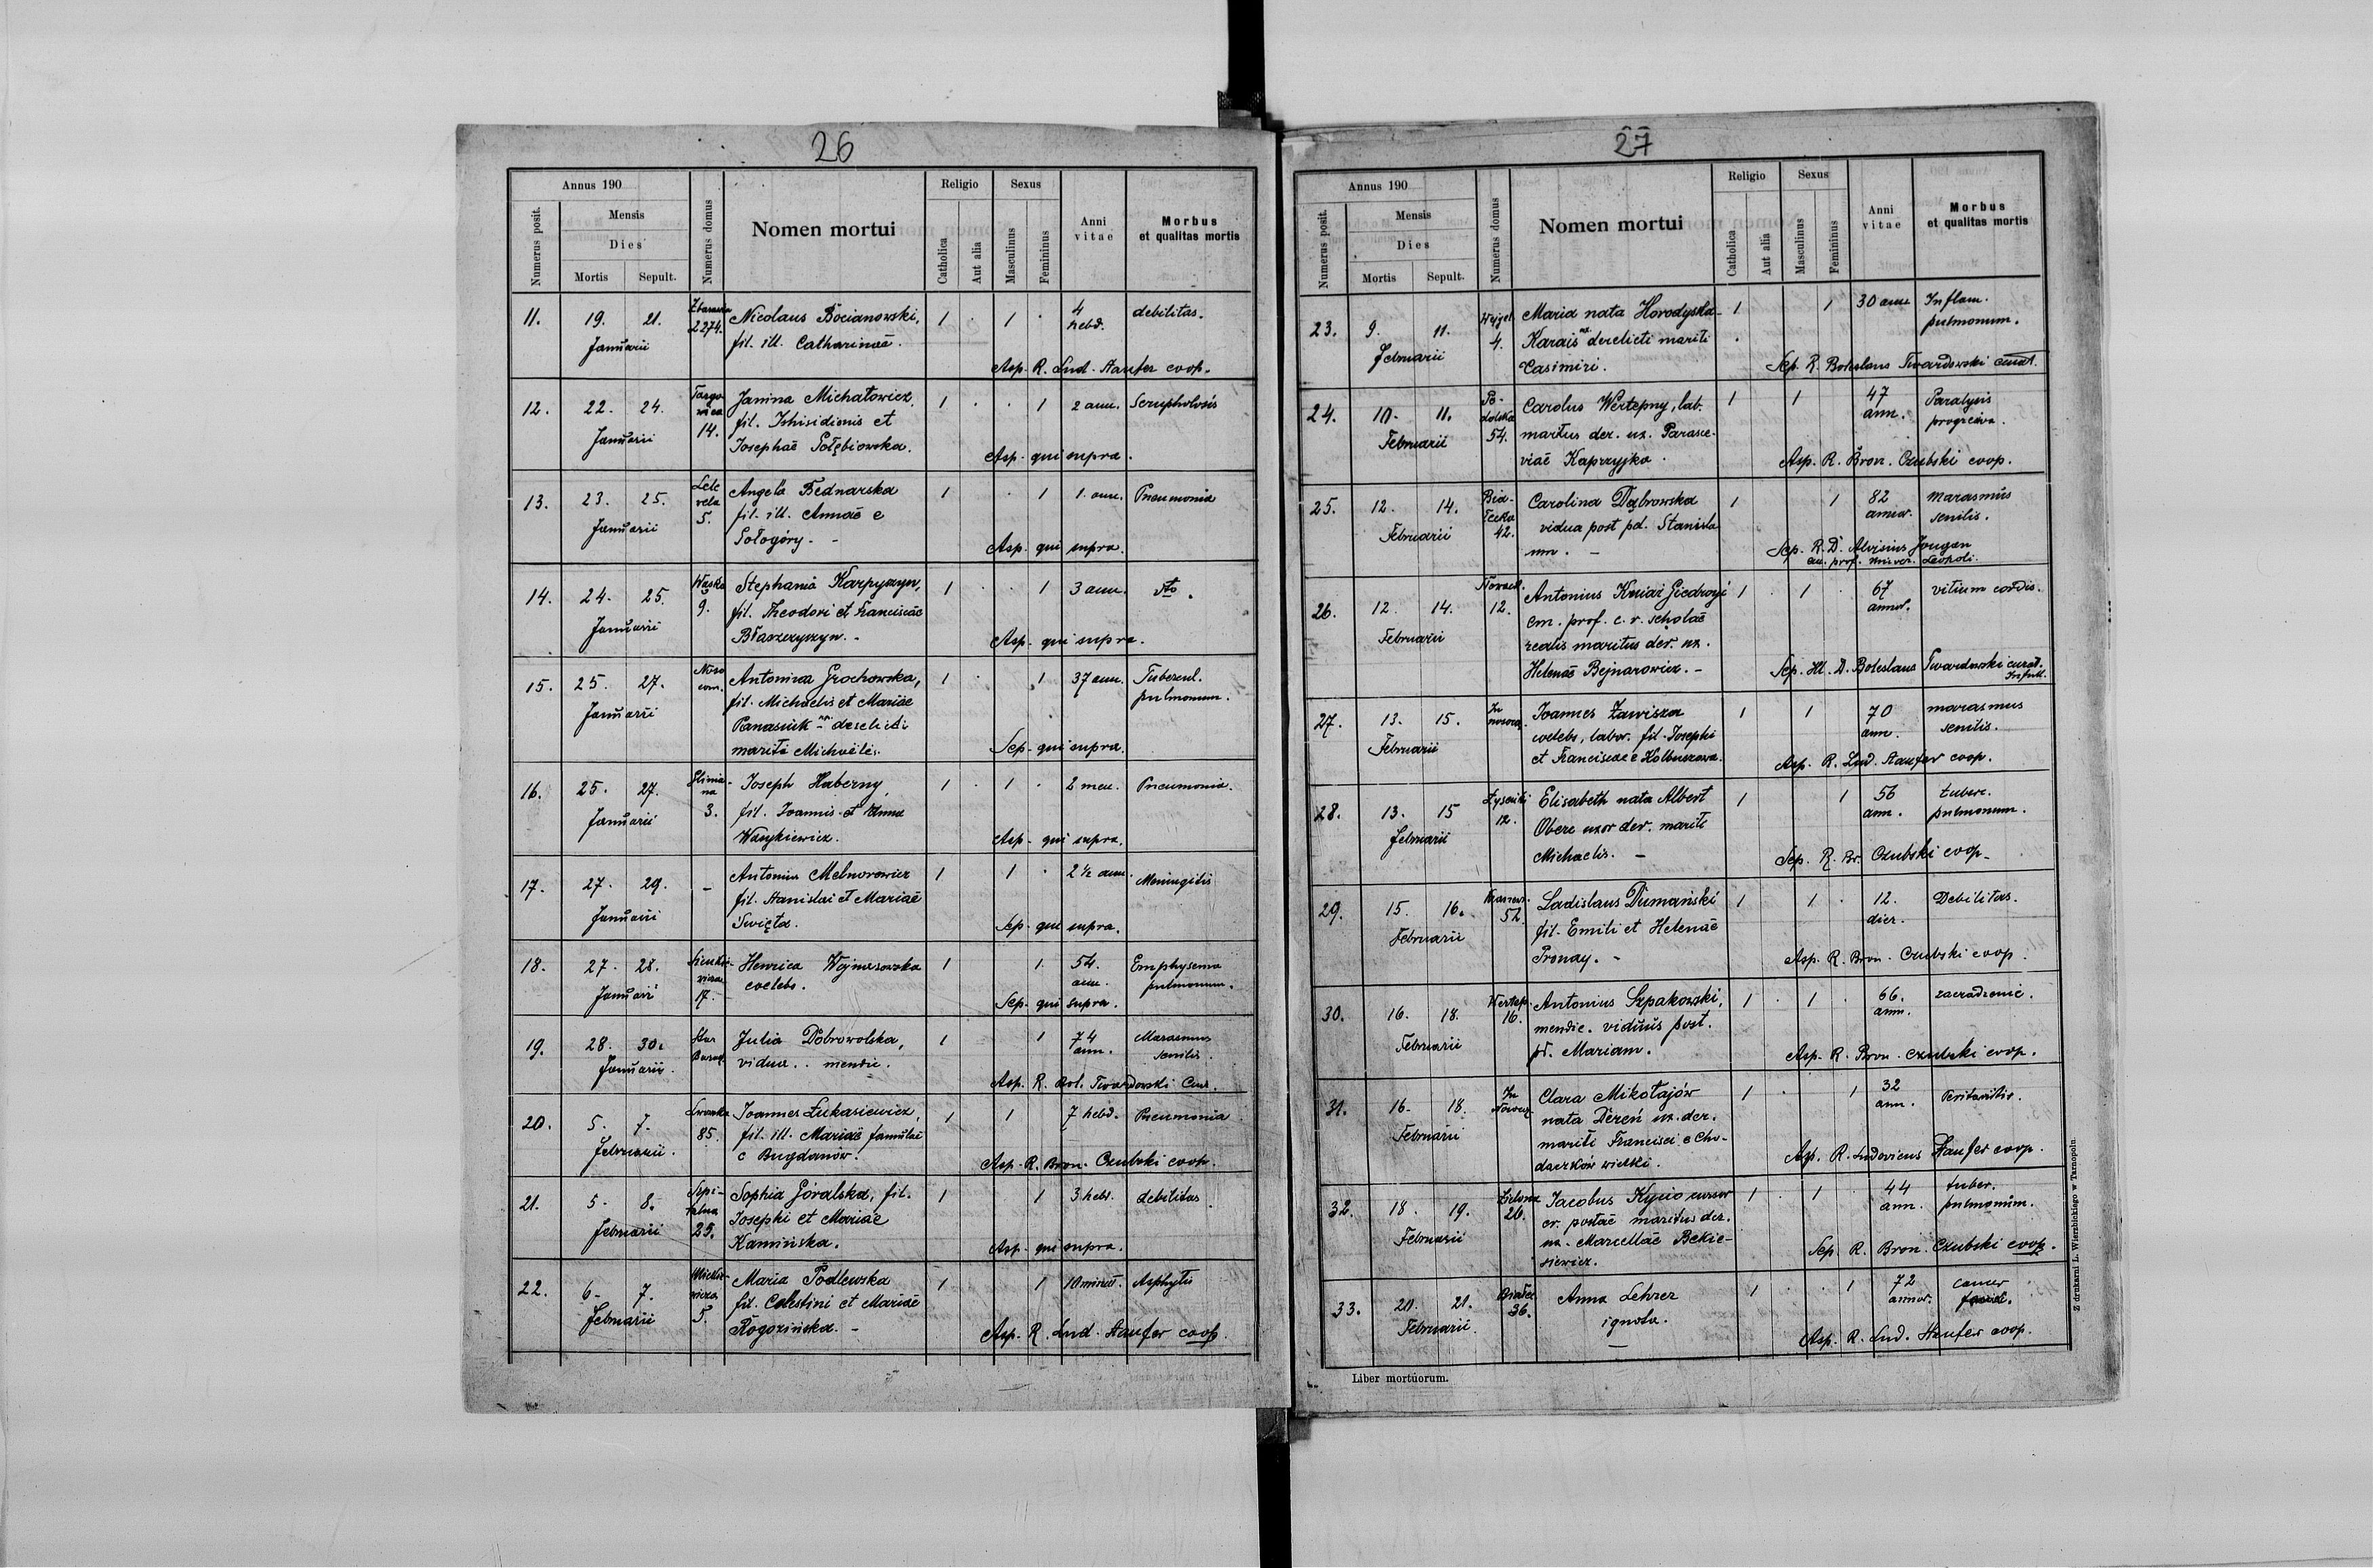 26
Annus 190
Religio
Sexus
Numerus posit.
Mensis
Dies
Mortis Sepult.
Numerus domus
Nomen mortui
Catholica
Aut alia
Masculinus
Femininus
Anni vitae
Morbus
et qualitas mortis
11. 19. 21. Januarii 2274. Nicolaus Bocianowski, 1 . 1 . 4 hebd. debilitas.
fil. ill. Catharinae.
Asp. R. Lud. Haufer coop.
12. 22. 24. Januarii Targowica 14. Janina Michałowicz, 1 . . 1 2 ann. Scrupholosis
fil. Ishisidionis et
Josephae Gołębiowska.
Asp. qui supra.
13. 23. 25. Januarii Lelevela 5. Angela Bednarska 1 . 1 1. ann. Pneumonia
fil. ill. Annae e
Gołogóry. -
Asp. qui supra.
14. 24. 25. Januarii Wąska 9. Stephania Karpyszyn, 1 . . 1 3 ann. dto.
fil. Theodori et Franciscae
Błaszczyszyn. -
Asp. qui supra.
15. 25. 27. Januarii Nosocom. Antonina Grochowska, 1 . . 1 37 ann. Tubercul. pulmonum.
fil. Michaelis et Mariae
Panasiuk ux. derelicti
mariti Michaëlis.
Sep. qui supra.
16. 25. 27. Januarii 3. Joseph Haberny, 1 . 1 . 2 men. Pneumonia.
fil. Joannis et Anna
Wasykiewicz.
Asp. qui supra.
17. 27. 29. Januarii - Antonius Melnorowicz 1 1 . 2 ½ ann. Meningitis
fil. Stanislai et Mariae
Święta.
Sep. qui supra.
18. 27. 28. Januarii 17. Henrica Wojnarowska 1 1. 54. ann. Emphysema pulmonum.
coelebs.
Sep. qui supra.
19. 28. 30. Januarii. Julia Dobrowolska, 1 1 74 ann. Marasmus senilis.
vidua. . mendic.
Asp. R. Bol. Twardowski Cur.
20. 5. 7. Februarii. Lwowska 85. Joannes Łukasiewicz, 1 1 7 hebd. Pneumonia
fil. ill. Mariae famulae
e Bugdanów.
Asp. R. Bron. Czubski coop.
21. 5. 8. Februarii Szpitalna 25. Sophia Góralska, fil. 1 1 3 hebd. debilitas.
Josephi et Mariae
Kamińska.
Asp. qui supra.
22. 6. 7. Februarii Mickiewicza 5. Maria Podlewska 1 1 10 minut. Asphytis
fil. Celestini et Mariae
Rogozińska. -
Asp. R. Lud. Haufer coop.
27
Annus 190
Religio
Sexus
Numerus posit.
Mensis
Dies
Mortis Sepult.
Numerus domus
Nomen mortui
Catholica
Aut alia
Masculinus
Femininus
Anni vitae
Morbus
et qualitas mortis
23. 9. 11. Februarii 4. Maria nata Horodyska 1 1 30 ann. Inflam. pulmonum.
Karais ux. derelicti mariti
Casimiri.
Sep. R. Boleslaus Twardowski curat.
24. 10. 11. Februarii Podolska 54. Carolus Wertepny, lab. 1 1 47 ann. Paralysis
maritus der. ux. Parasceviae Kaprzyjka.
Asp. R. Bron. Czubski coop.
25. 12. 14. Februarii 42. Carolina Dąbrowska 1 1 82 annor. marasmus senilis.
vidua post pd. Stanislaum. -
Sep. R. D. Aloisius Jougan
prof. univer. Leopoli.
26. 12. 14. Februarii 12. Antonius Kniaź Giedroyć 1 . 1 . 67 annor. vitium cordis.
em. prof. c. r. scholae
realis maritus der. ux.
Helenae Bejnarowicz. -
Boleslaus Twardowski curat.
27. 13. 15. Februarii Joannes Zawisza 1 1 70 ann. marasmus senilis.
coelebs, labor. fil. Josephi
et Franciscae e Kolbuszowa.
Asp. R. Lud. Haufer coop.
28. 13. 15 Februarii 12. Elisabeth nata Albert 1 1 56 ann. tuberc. pulmonum.
Oberc uxor der. mariti
Michaelis. -
Sep. R. Br. Czubski coop.
29. 15. 16. Februarii 52. Ladislaus Dumański 1 1 . 12. dier. Debilitas.
fil. Emili et Helenae
Pronay. -
Asp. R. Bron. Czubski coop.
30. 16. 18. Februarii 16. Antonius Szpakowski, 1 . 1 . 66. ann. zaczadzenie.
mendic. viduus post.
pd. Mariam.
Asp. R. Bron. Czubski coop.
31. 16. 18. Februarii Clara Mikołajów 1 . 1 32 ann. Peritonitis.
nata Dereń ux. der.
mariti Francisci e Chodaczków wielki.
Asp. R. Ludovicus Haufer coop.
32. 18. 19. Februarii Zielona 20. Jacobus Kycio cursor 1 . 1 44 ann. tuber. pulmonum.
cr. postae maritus der.
ux. Marcellae Bekiesiewicz.
Sep. R. Bron. Czubski coop.
33. 20. 21. Februarii 36. Anna Lehrer 1 . . 1 72 annor. cancer
ignota.
Asp. R. Lud. Haufer coop.
Liber mortuorum.
Z drukarni L. Wierzbickiego w Tarnopolu.